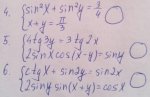 4. { sin²x + sin²y = 3/4
x + y = π/3
5. { 4tg3y = 3tg2x
2sinx cos(x-y) = siny
6. { ctgx + sin2y = sin2x
2siny sin(x+y) = cosx